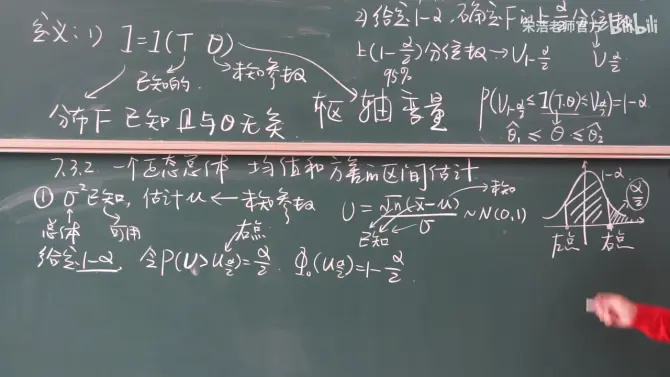 定义:1) I=I(T θ)
已知的 未知参数
分布F 已知且与θ无关
枢轴变量
2)给定1-α,确定F的上α/2分位数
上(1-α/2)分位数→V1-α/2 Vα/2
95%
P(V1-α/2≤I(T,θ)≤Vα/2)=1-α
θ̂1≤θ≤θ̂2
宋浩老师官方
bilibili
7.3.2 一个正态总体 均值和方差的区间估计
① σ²已知,估计μ←未知参数
总体 可用
U=√n(x̄-μ)/σ ~N(0,1)
未知
已知
给定1-α,令P(U>uα/2)=α/2. Φ0(uα/2)=1-α/2.
右点
1-α
α/2
左点 右点